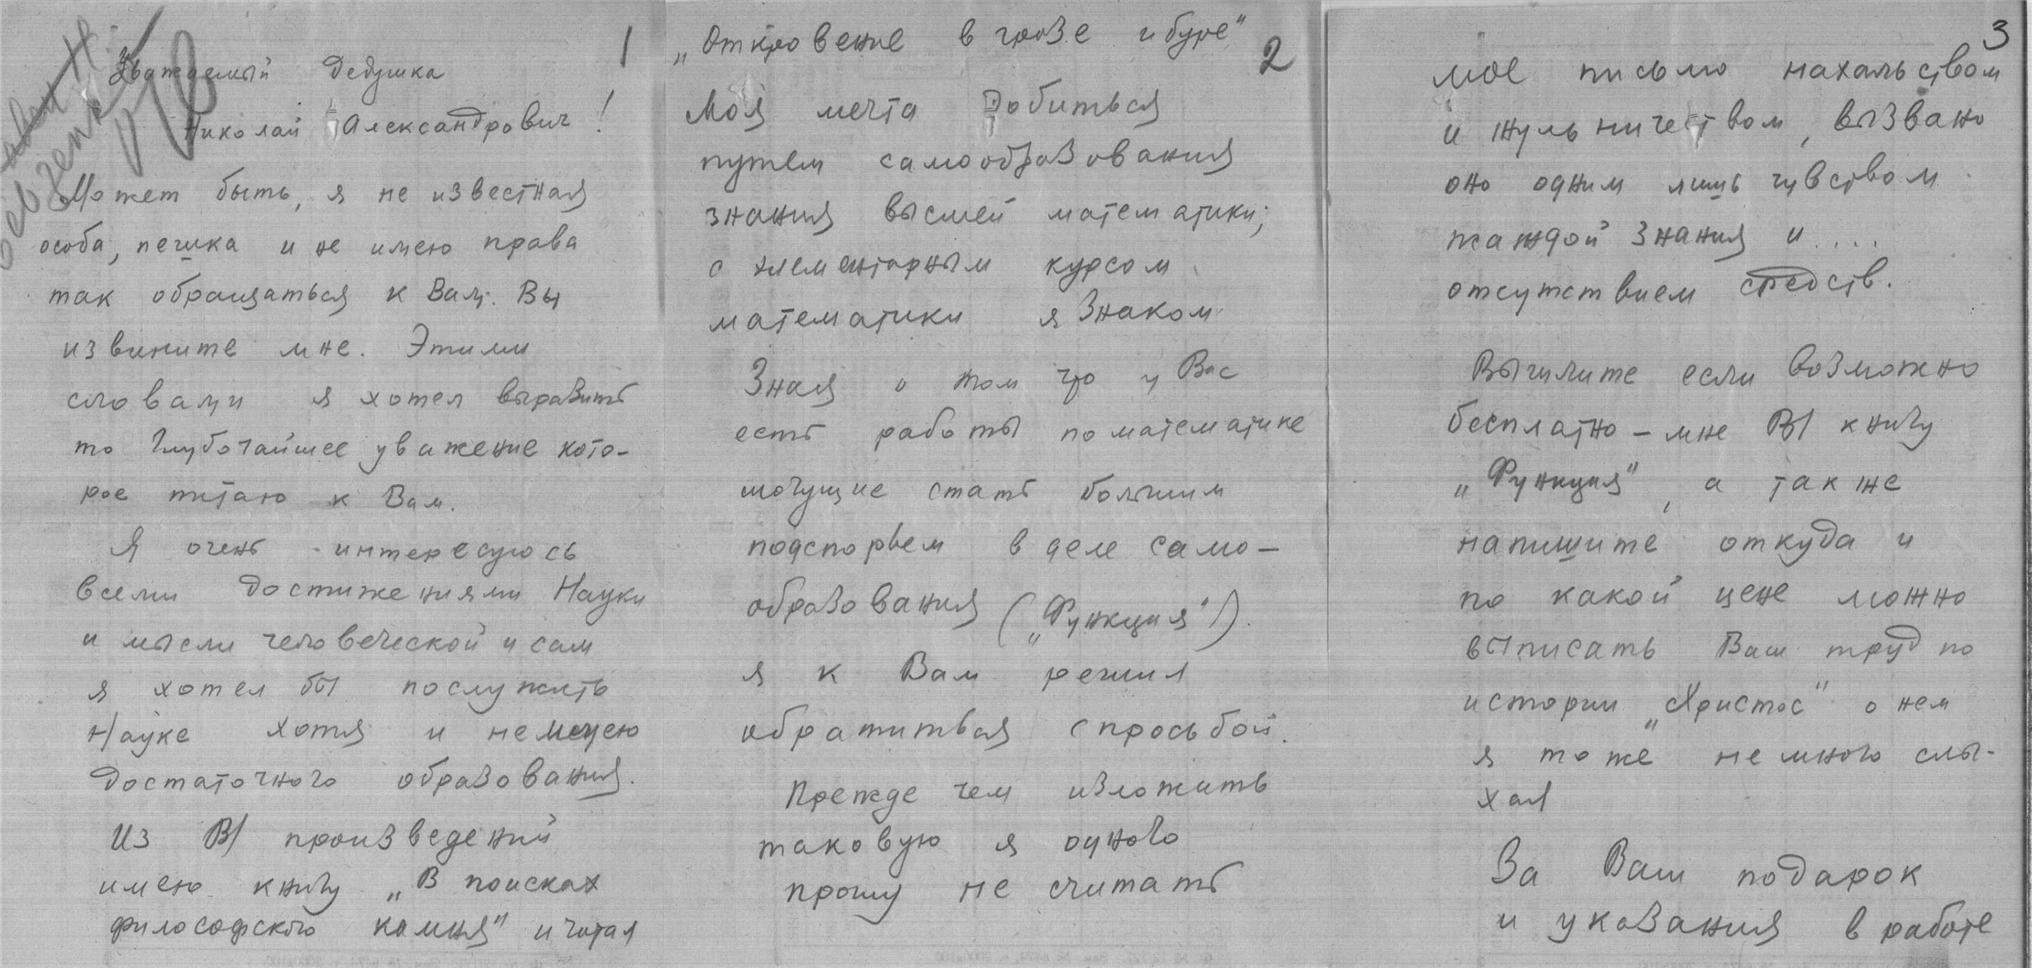 1
Уважаемый Дедушка
Николай Александрович!
Может быть, я не известная
особа, пешка и не имею права
так обращаться к Вам. Вы
извините мне. Этими
словами я хотел выразить
то глубочайшее уважение кото-
рое питаю к Вам.
Я очень интересуюсь
всеми достижениями Науки
и мысли человеческой и сам
я хотел бы послужить
Науке хотя и не имею
достаточного образования.
Из В/ произведений
имею книгу „В поисках
философского камня" и читал
2
„Откровение в грозе и буре"
Моя мечта добиться
путем самообразования
знания высшей математики;
с элементарным курсом
математики я знаком.
Зная о том что у Вас
есть работы по математике
могущие стать большим
подспорьем в деле само-
образования („Функция").
я к Вам решил
обратиться с просьбой.
Прежде чем изложить
таковую я одного
прошу не считать
3
мое письмо нахальством
и жульничеством, вызвано
оно одним лишь чувством
жаждой знания и ....
отсутствием средств.
Вышлите если возможно
бесплатно – мне В/ книгу
„Функция", а также
напишите откуда и
по какой цене можно
выписать Ваш труд по
истории „Христос" о нем
я тоже немного слы-
хал
За Ваш подарок
и указания в работе